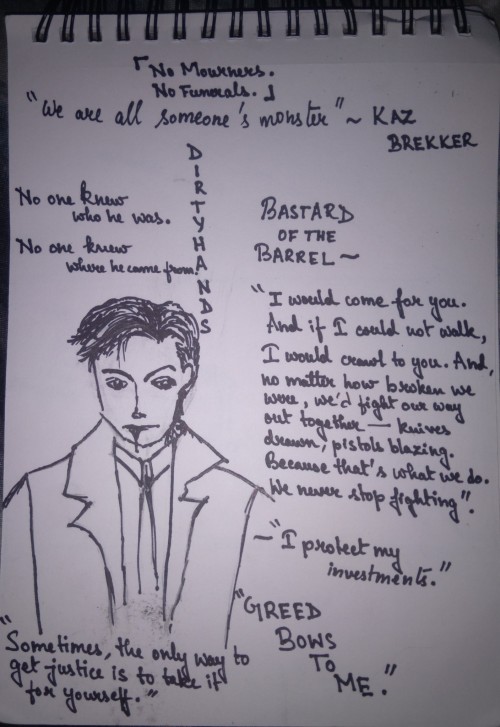 「No Mourners.
No Funerals.」
"We are all someone's monster" ~ KAZ
BREKKER
DIRTYHANDS
No one knew
who he was.
No one knew
where he came from.
BASTARD
OF THE
BARREL ~
"I would come for you.
And if I could not walk,
I would crawl to you. And,
no matter how broken we
were, we'd fight our way
out together — knives
drawn, pistols blazing.
Because that's what we do.
We never stop fighting".
~ "I protect my
investments."
"GREED
BOWS
TO
ME."
"Sometimes, the only way to
get justice is to take it
for yourself."